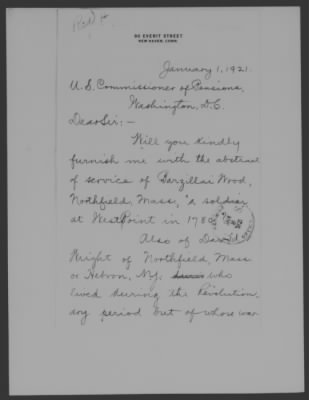 96 EVERIT STREET
NEW HAVEN, CONN.
January 1, 1921.
U.S. Commissioner of Pensions,
Washington, D.C.
Dear Sir:—
Will you kindly
furnish me with the abstract
of service of Barzillai Wood,
Northfield, Mass, "a soldier
at West Point in 1780"
Also of David
Wright of Northfield, Mass
or Hebron, N.Y. who
lived during the Revolution,
any period out of whose war